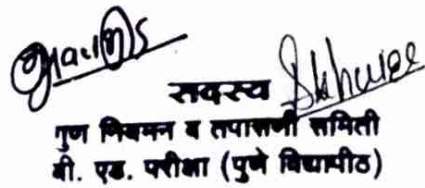 सदस्य
गुण नियमन व तपासणी समिती
बी. एड. परीक्षा (पुणे विद्यापीठ)